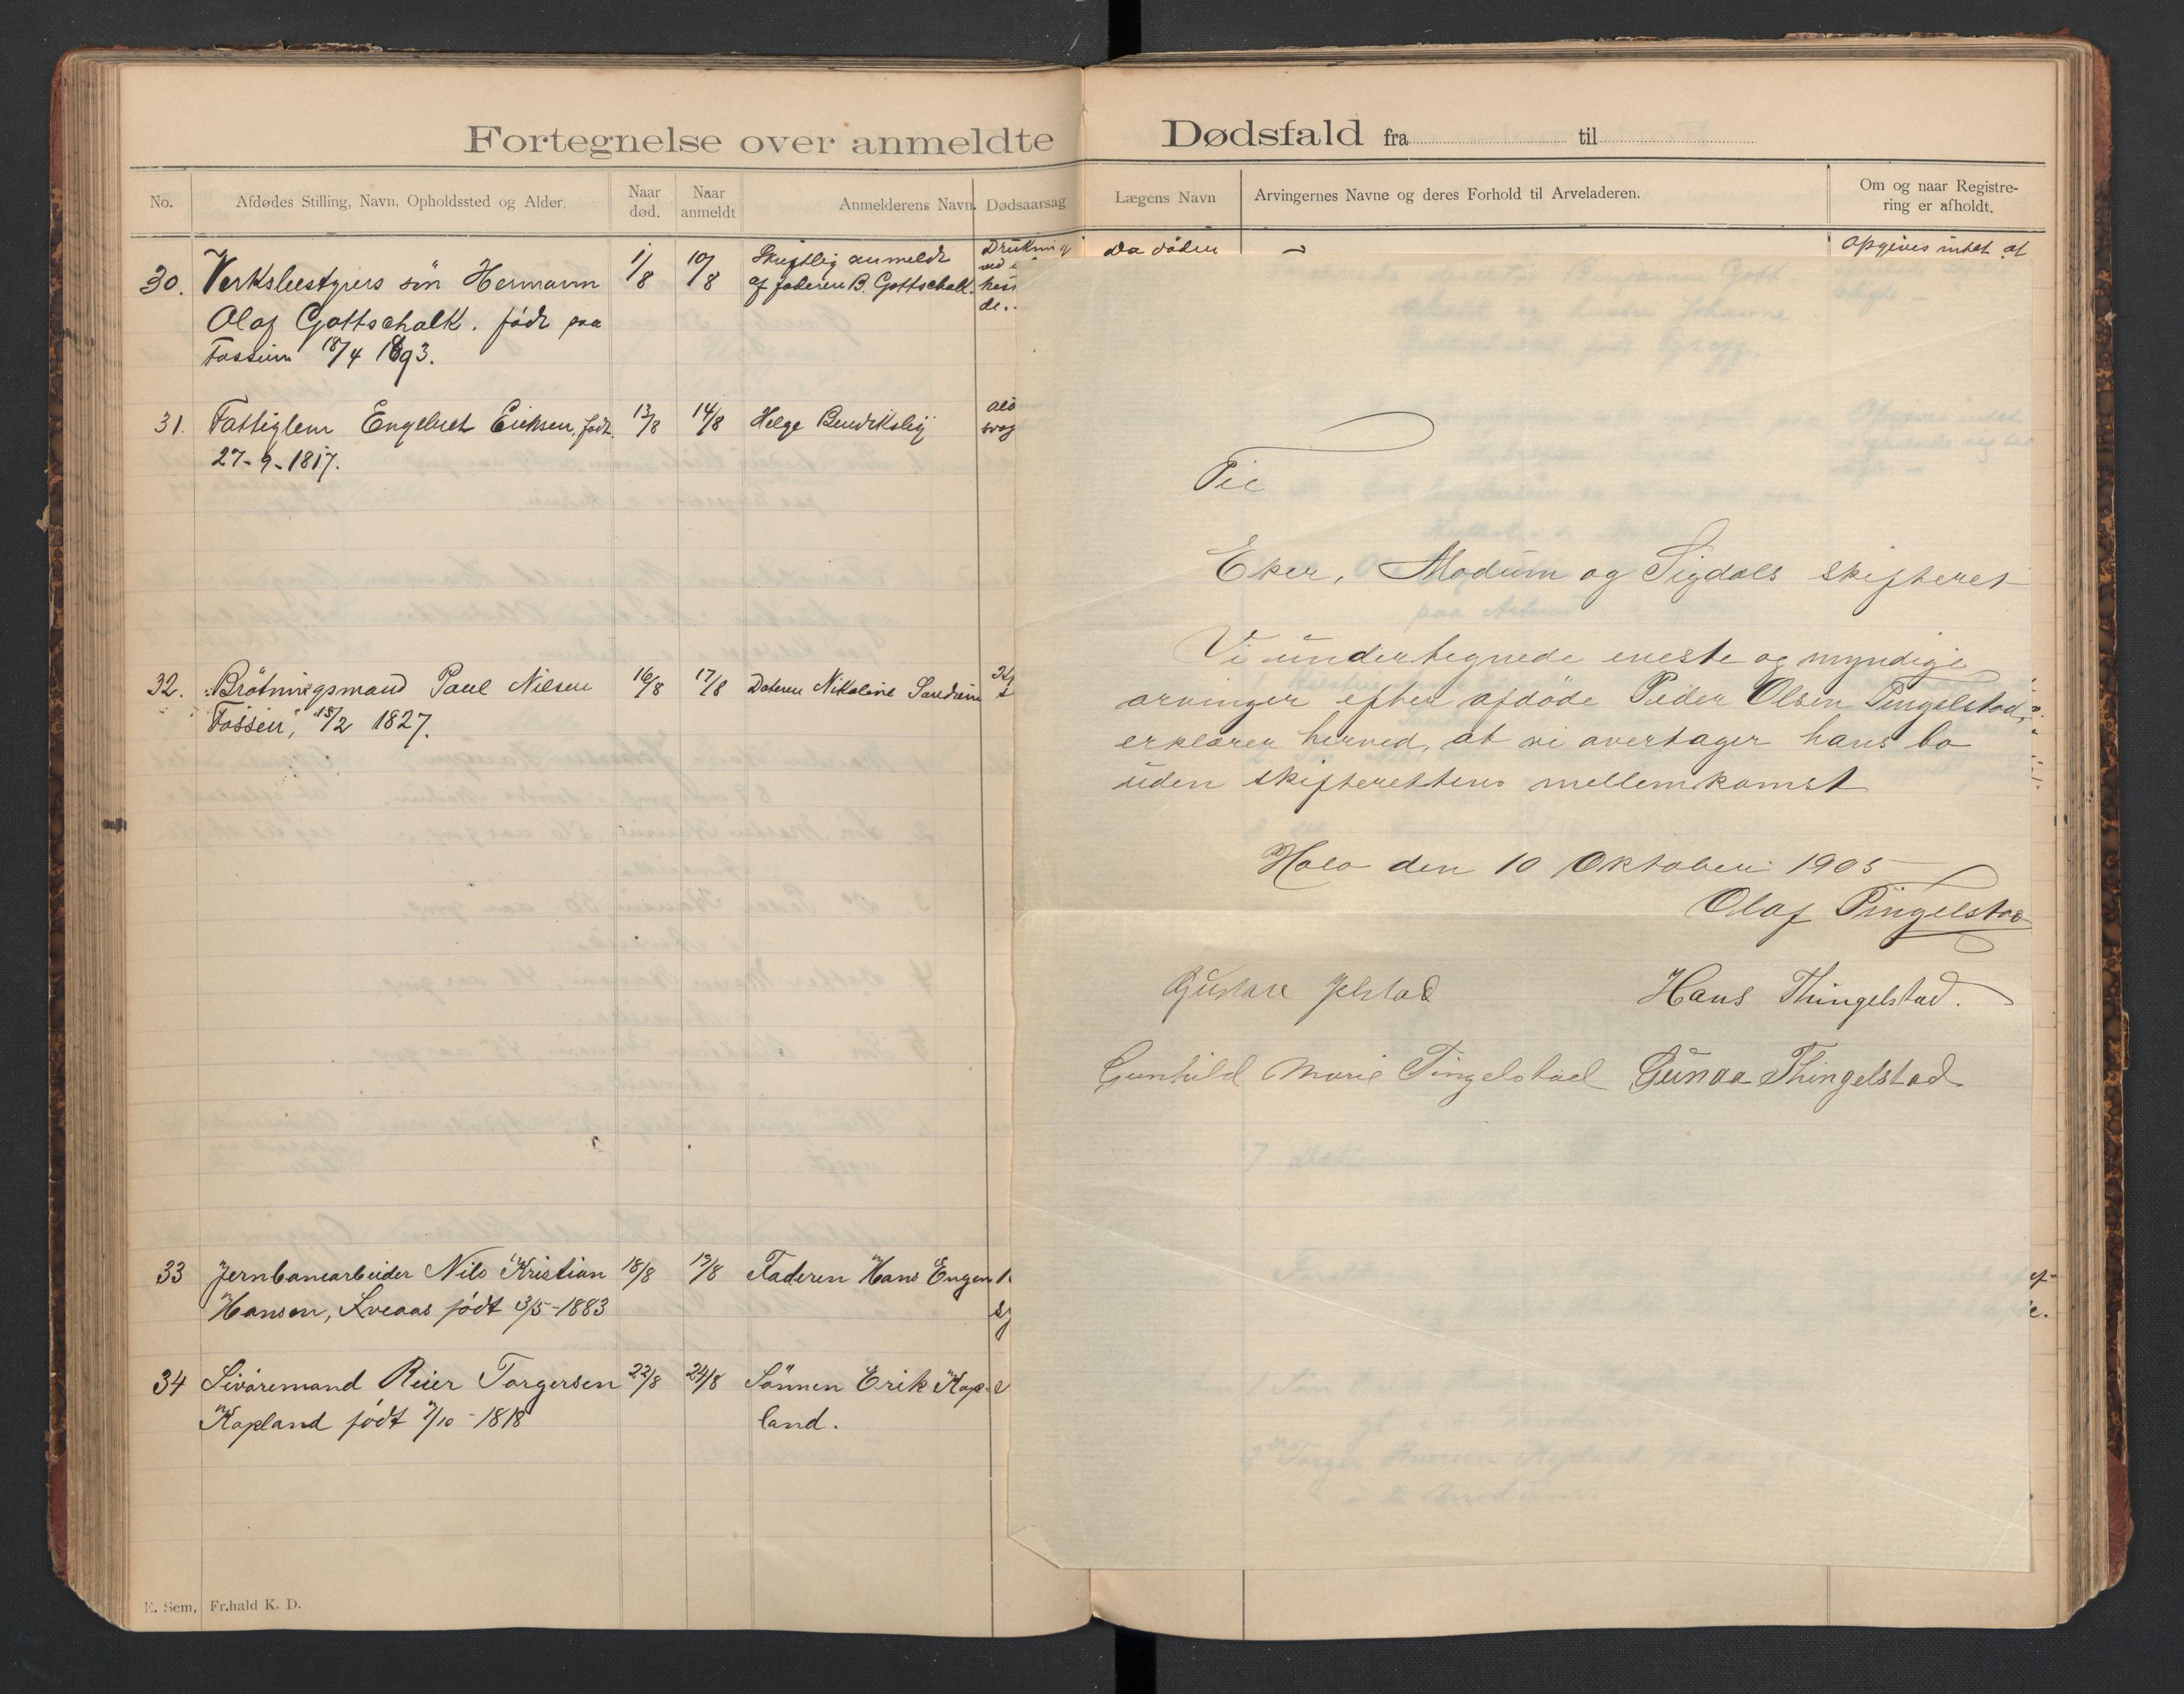 Fortegnelse over anmeldte Dødsfald fra til
No. Afdødes Stilling, Navn, Opholdssted og Alder. Naar død. Naar anmeldt Anmelderens Navn. Dødsaarsag Lægens Navn Arvingernes Navne og deres Forhold til Arveladeren. Om og naar Registrering er afholdt.
30. Verksbestyrers sön Hermann 1/8 10/8 Skriftlig anmeldt Drukning Da döden Opgives intet at
Olaf Gottschalk. født paa af faderen B. Gottschalk.
Fossum 18/4 1893. de..
31. Fattiglem Engebret Eriksen, født 13/8 14/8 Helge Bendiksby
27-9-1817.
32. Brötningsmand Paul Nilsen 16/8 17/8 Datteren Nikoline
Fossen, 15/2 1827.
33 Jernbanearbeider Nils Kristian 18/8 19/8 Faderen Hans Engen
Hansen, Sveaas født 3/5-1883
34 Livöremand Reier Torgersen 22/8 24/8 Sönnen Erik Kop-
Kopland født 7/10-1818 land.
E. Sem, Fr.hald K. D.
Til
Eker, Modum og Sigdals skifteret
Vi undertegnede eneste og myndige
arvinger efter afdöde Peder Olsen Tingelstad,
erklærer herved, at vi overtager hans bo
uden skifterettens mellemkomst
Holo den 10 Oktober 1905
Olaf Tingelstad
Gustav Jelstad Hans Thingelstad.
Gunhild Marie Tingelstad Gunda Thingelstad